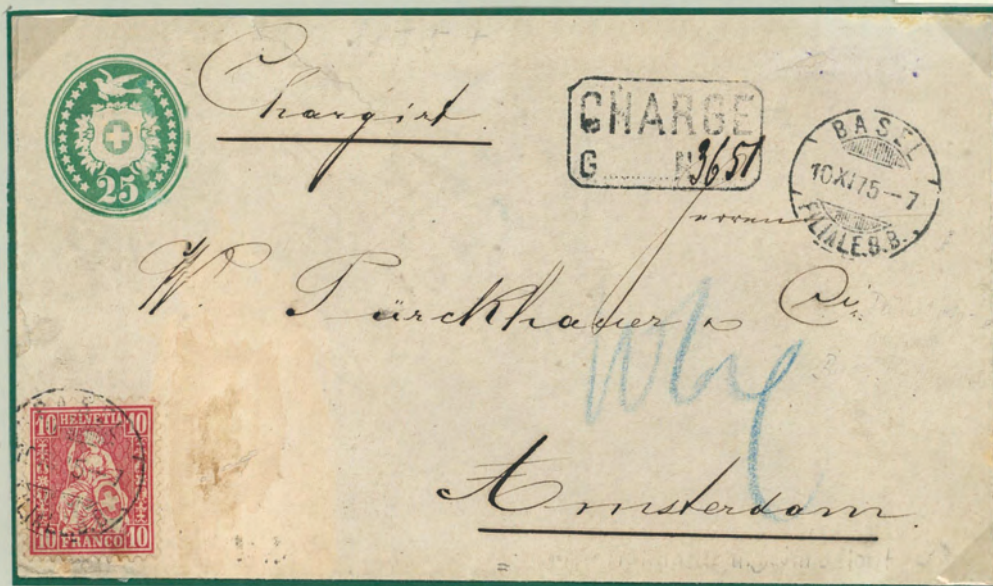 Chargirt.
CHARGE
G......N 3651
25
BASEL
10 XI 75-7
FILIALE.B.B.
Herren
W. Türckhauer & Cie.
Amsterdam.
10 HELVETIA 10
10 FRANCO 10